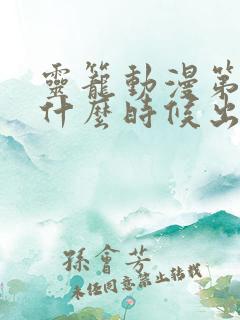 靈籠動漫第
什麼時候出
孫會芳
未經同意禁止轉載